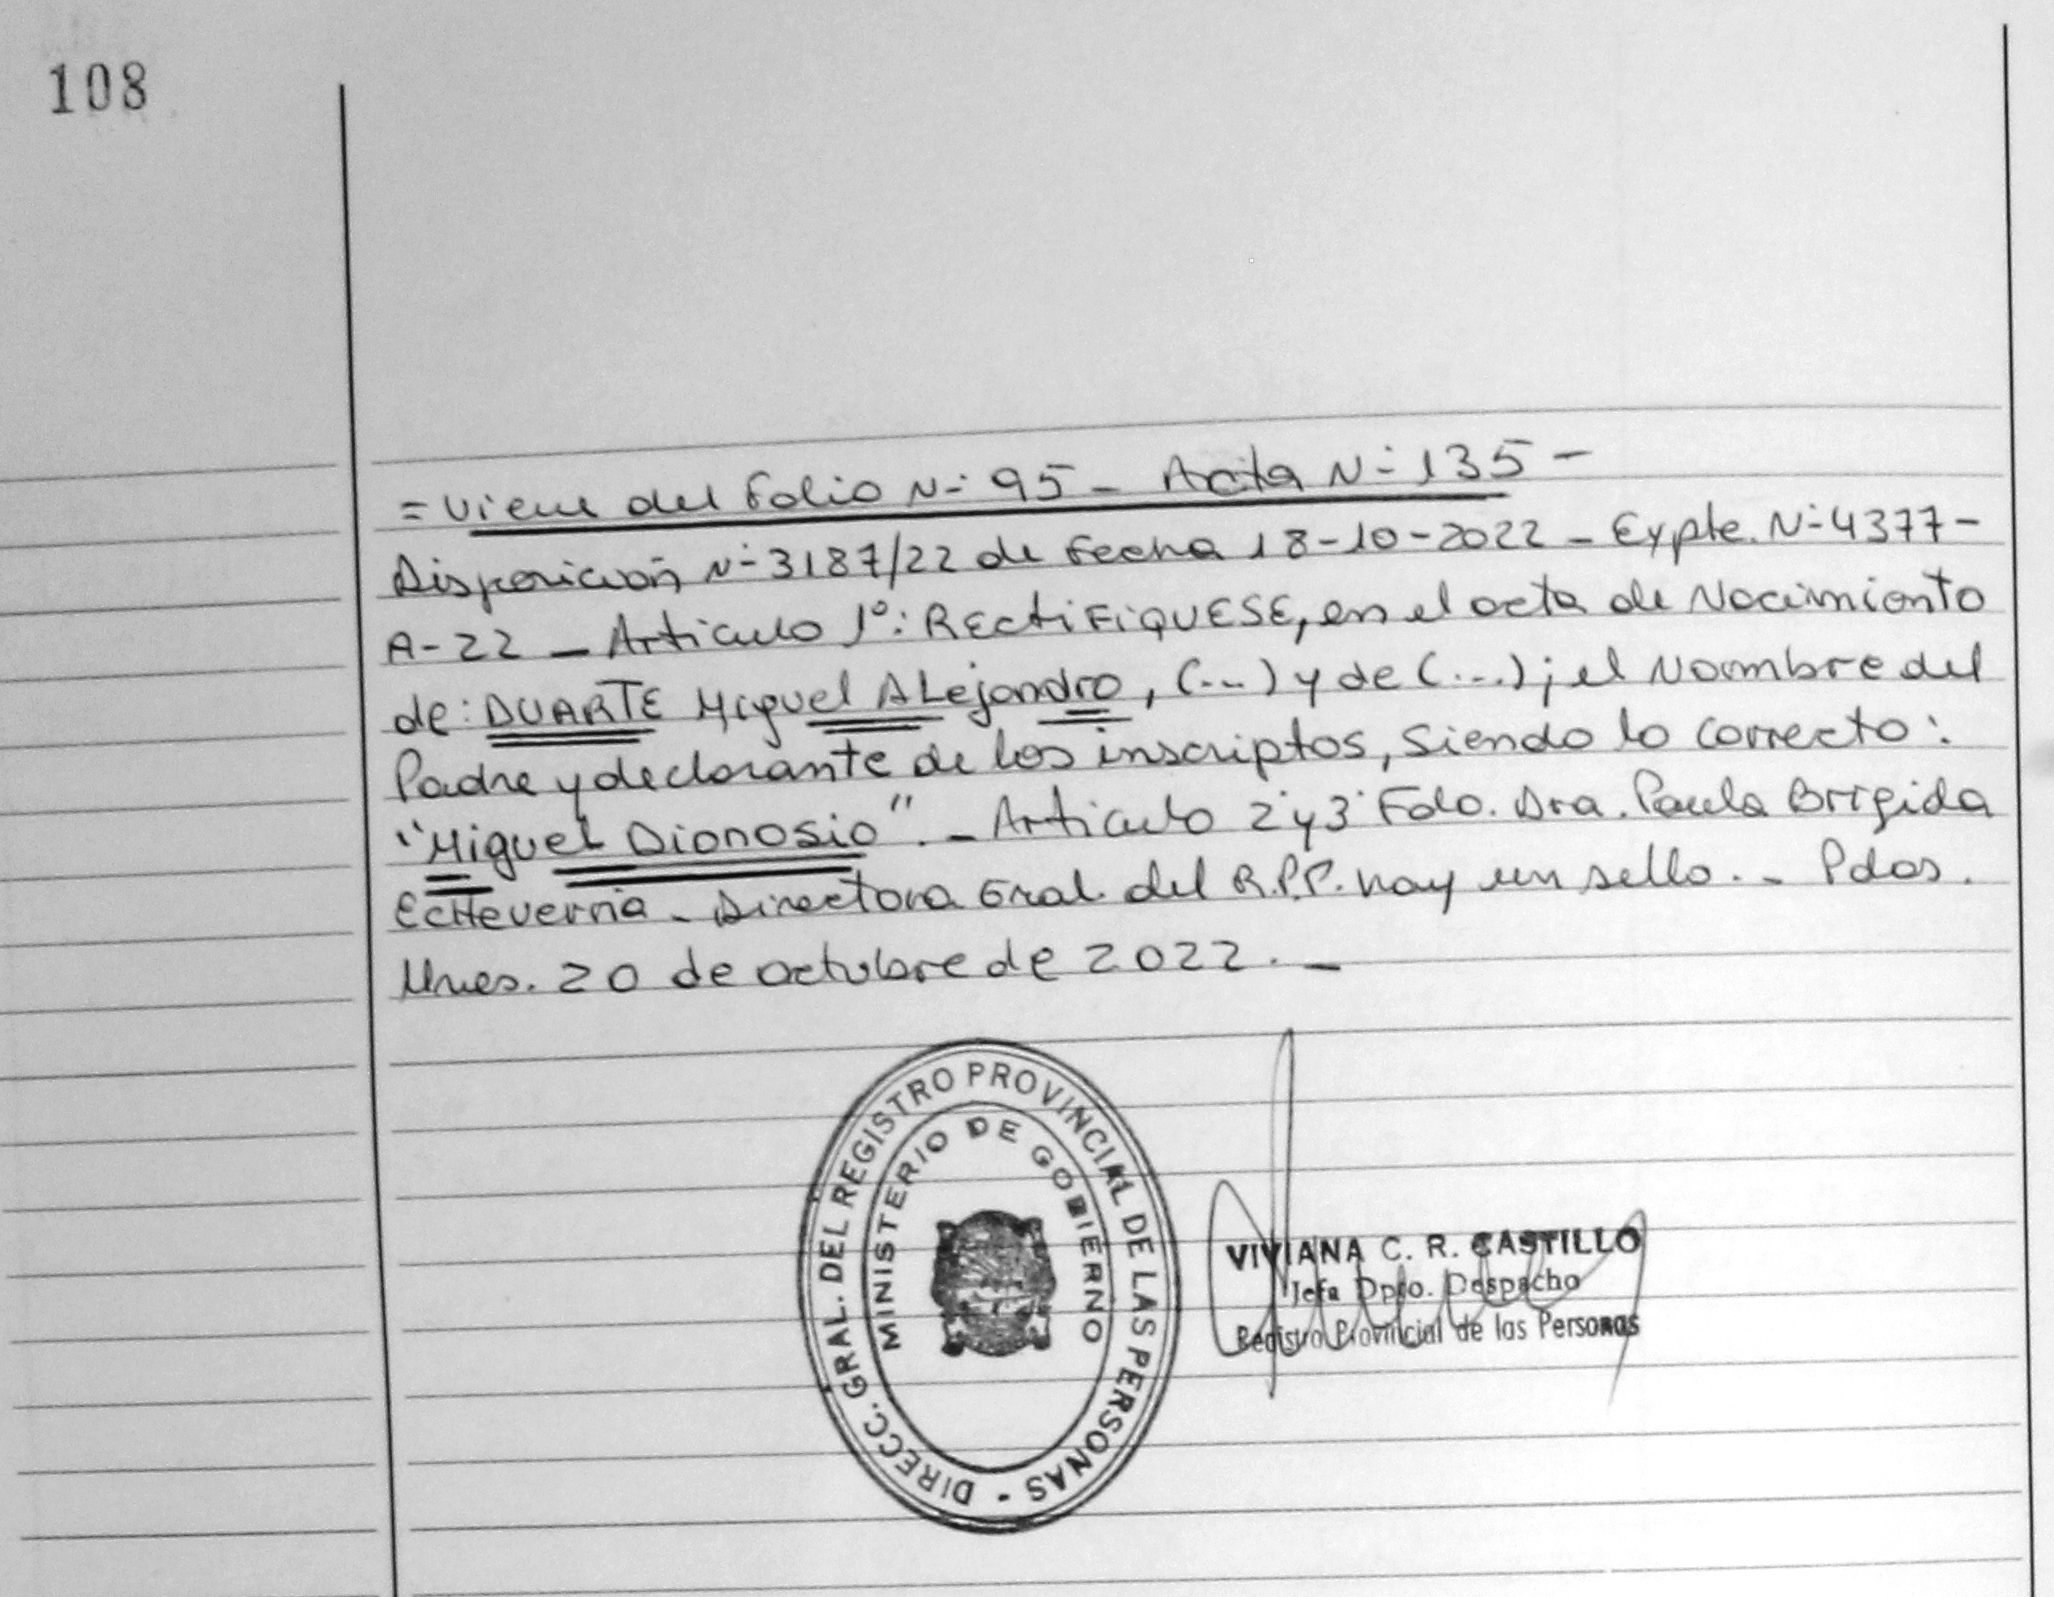 108
= Viene del Folio N° 95 - Acta N° 135 -
Disposición N° 3187/22 de Fecha 18-10-2022 - Expte. N° 4377-
A-22 - Articulo 1°: RECtiFiQUESE, en el acta de Nacimiento
de: DUARTE Miguel ALejandro, (...) y de (...); el Nombre del
Padre y declarante de los inscriptos, siendo lo correcto:
"Miguel Dionosio". - Articulo 2° y 3° Fdo. Dra. Paula Brigida
Echeverria - Directora Gral. del R.P.P. hay un sello. - Pdas.
Mnes. 20 de octubre de 2022. -
DIRECC. GRAL. DEL REGISTRO PROVINCIAL DE LAS PERSONAS -
MINISTERIO DE GOBIERNO
VIVIANA C. R. CASTILLO
Jefa Dpto. Despacho
Registro Provincial de las Personas